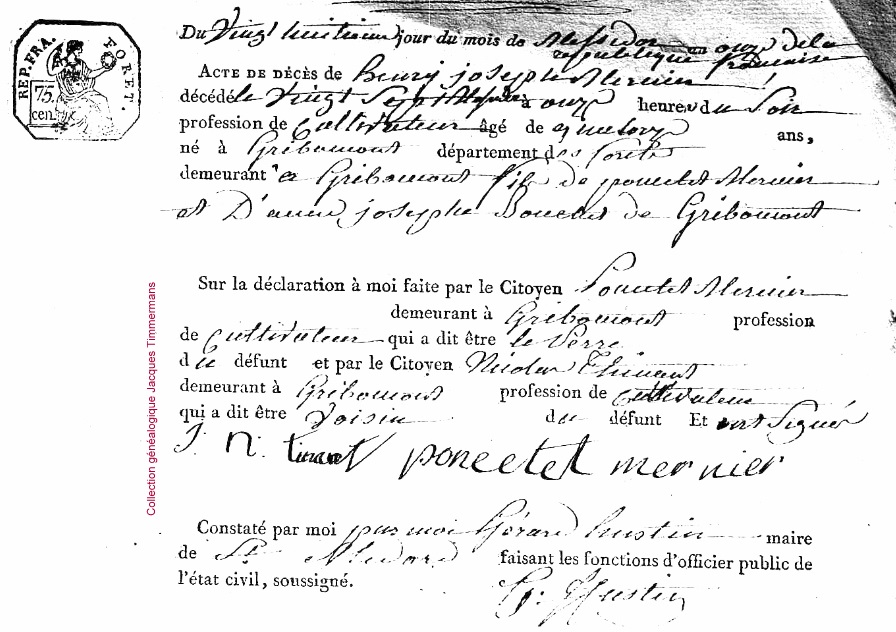 REP. FRA.
FORET.
75.
cen.
Du Vingt huitieme jour du mois de Messidor an onze de la
republique francaise
ACTE DE DÉCÈS de henry josephe Mernier
décédé le Vingt Sept à onze heures du Soir
profession de Cultivateur âgé de quatorze ans,
né à Gribomont département des forêts
demeurant à Gribomont fils de poncelet Mernier
et D'anne josephe de Gribomont
Sur la déclaration à moi faite par le Citoyen Poncelet Mernier
demeurant à Gribomont profession
de Cultivateur qui a dit être le Perre
du défunt et par le Citoyen Nicolas
demeurant à Gribomont profession de Cultivateur
qui a dit être Voisin du défunt Et ont Signé
J. n: tinant poncelet mernier
Constaté par moi par moi Gérard hustin maire
de St. Medard faisant les fonctions d'officier public de
l'état civil, soussigné.
G: hustin
Collection généalogique Jacques Timmermans